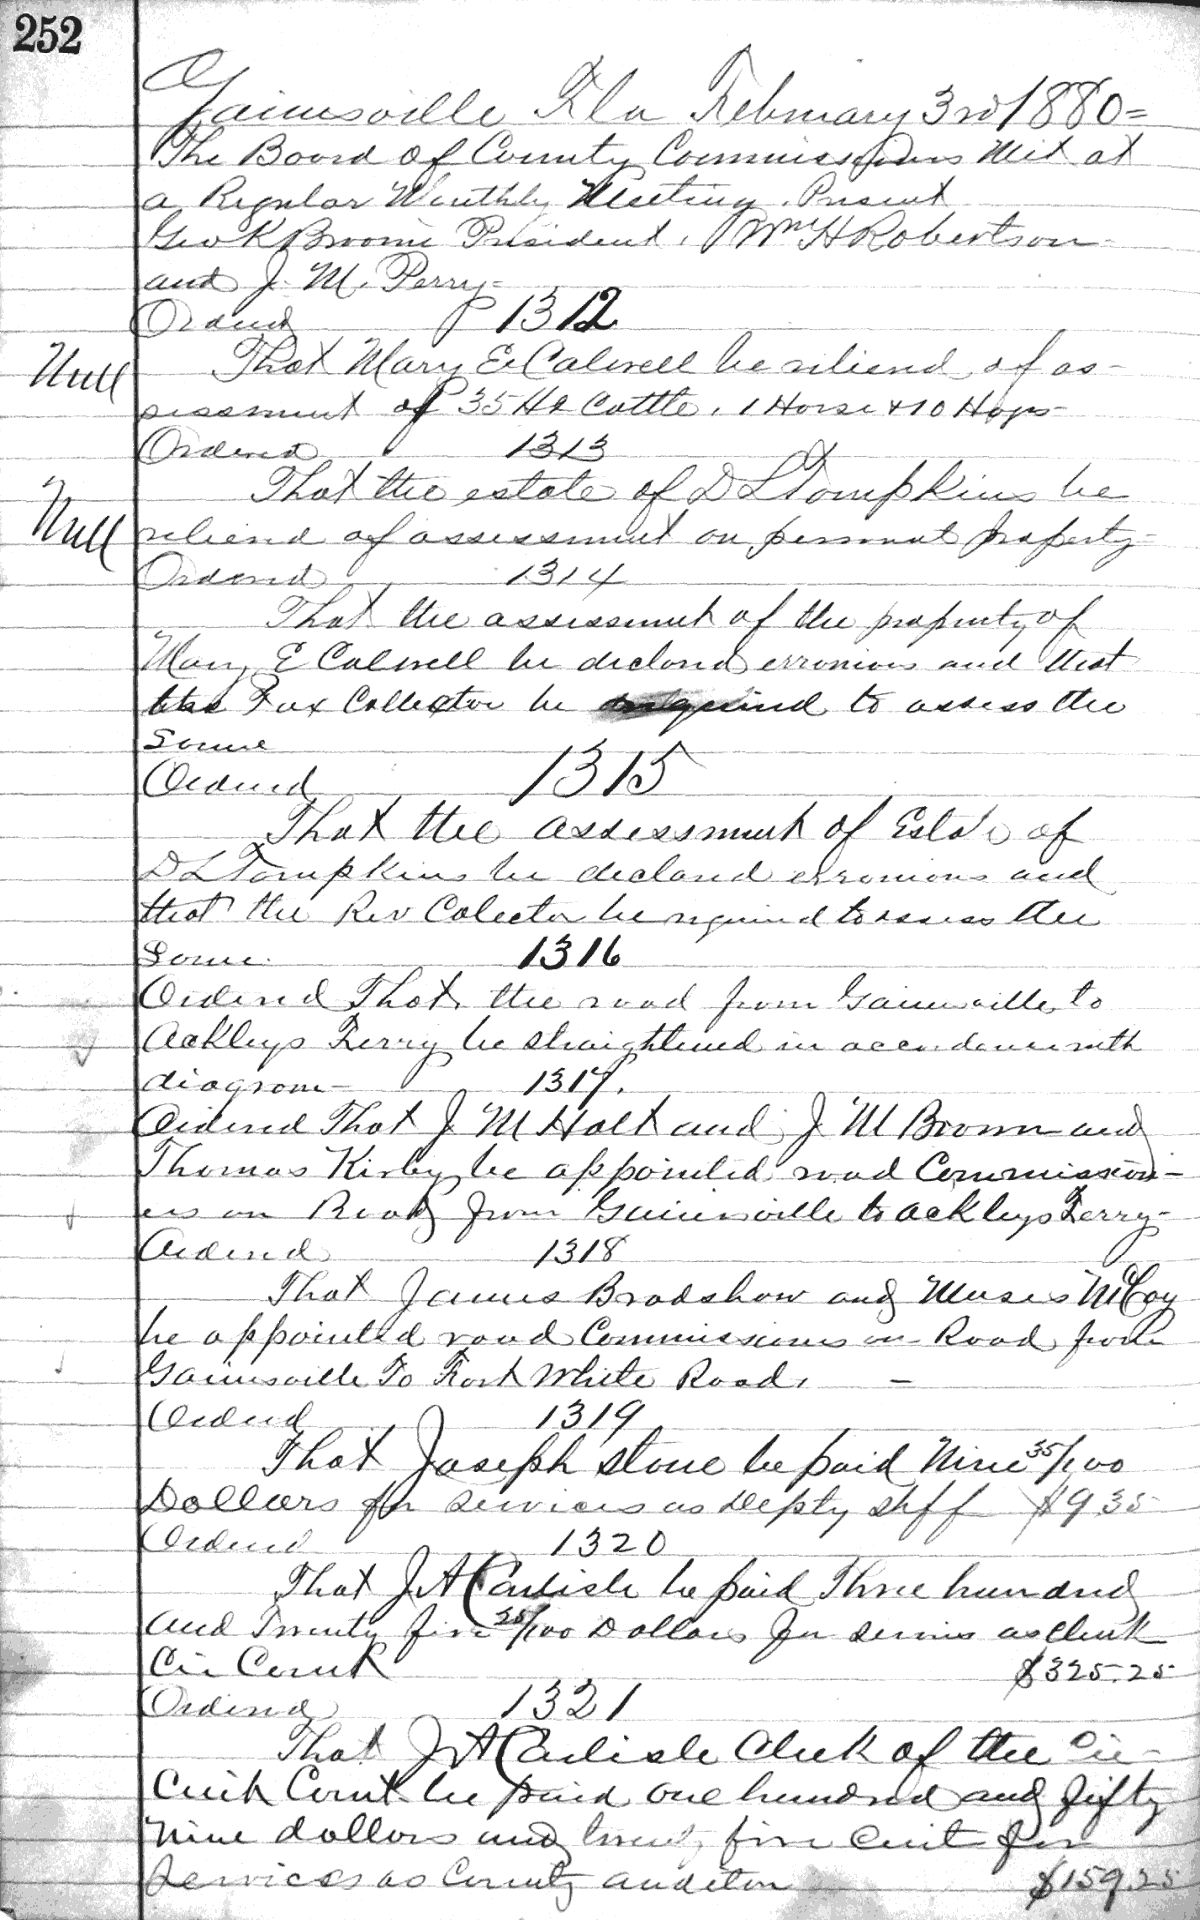 252
Gainesville Fla February 3rd 1880=
The Board of County Commissioners Met at
a Regular Monthly Meeting. Present
Geo K Broome President, Wm H Robertson
and J. M. Perry-
Ordered 1312
Null That Mary E Calwell be relieved of as-
sessment of 35 Hd Cattle, 1 Horse & 10 Hogs-
Ordered 1313
That the estate of D L Tompkins be
Null relieved of assessment on personal property-
Ordered 1314
That the assessment of the property of
Mary E Calwell be declared erronious and that
the Tax Collector be required to assess the
Same
Ordered 1315
That the assessment of Estate of
D L Tompkins be declared erronious and
that the Rev Colector be required to assess the
Same. 1316
Ordered That the road from Gainesville to
Ackleys Ferry be straightened in accordance with
diagram- 1317.
Ordered That J M Holt and J M Brown and
Thomas Kirby be appointed road Commission-
ers on Road from Gainesville to Ackleys Ferry-
Ordered 1318
That James Bradshaw and Moses McCoy
be appointed road Commissioners on Road from
Gainesville To Fort White Road. -
Ordered 1319
That Joseph Stone be paid Nine 35/100
Dollars for Services as Depty Shff $9.35
Ordered 1320
That J A Carlisle be paid Three hundred
and Twenty five 25/100 Dollars for services as Clerk
Cir Court $325.25
Ordered 1321
That J A Carlisle Clerk of the Cir-
cuit Court be paid one hundred and fifty
Nine dollars and twenty five Cents for
Services as County auditor $159.25